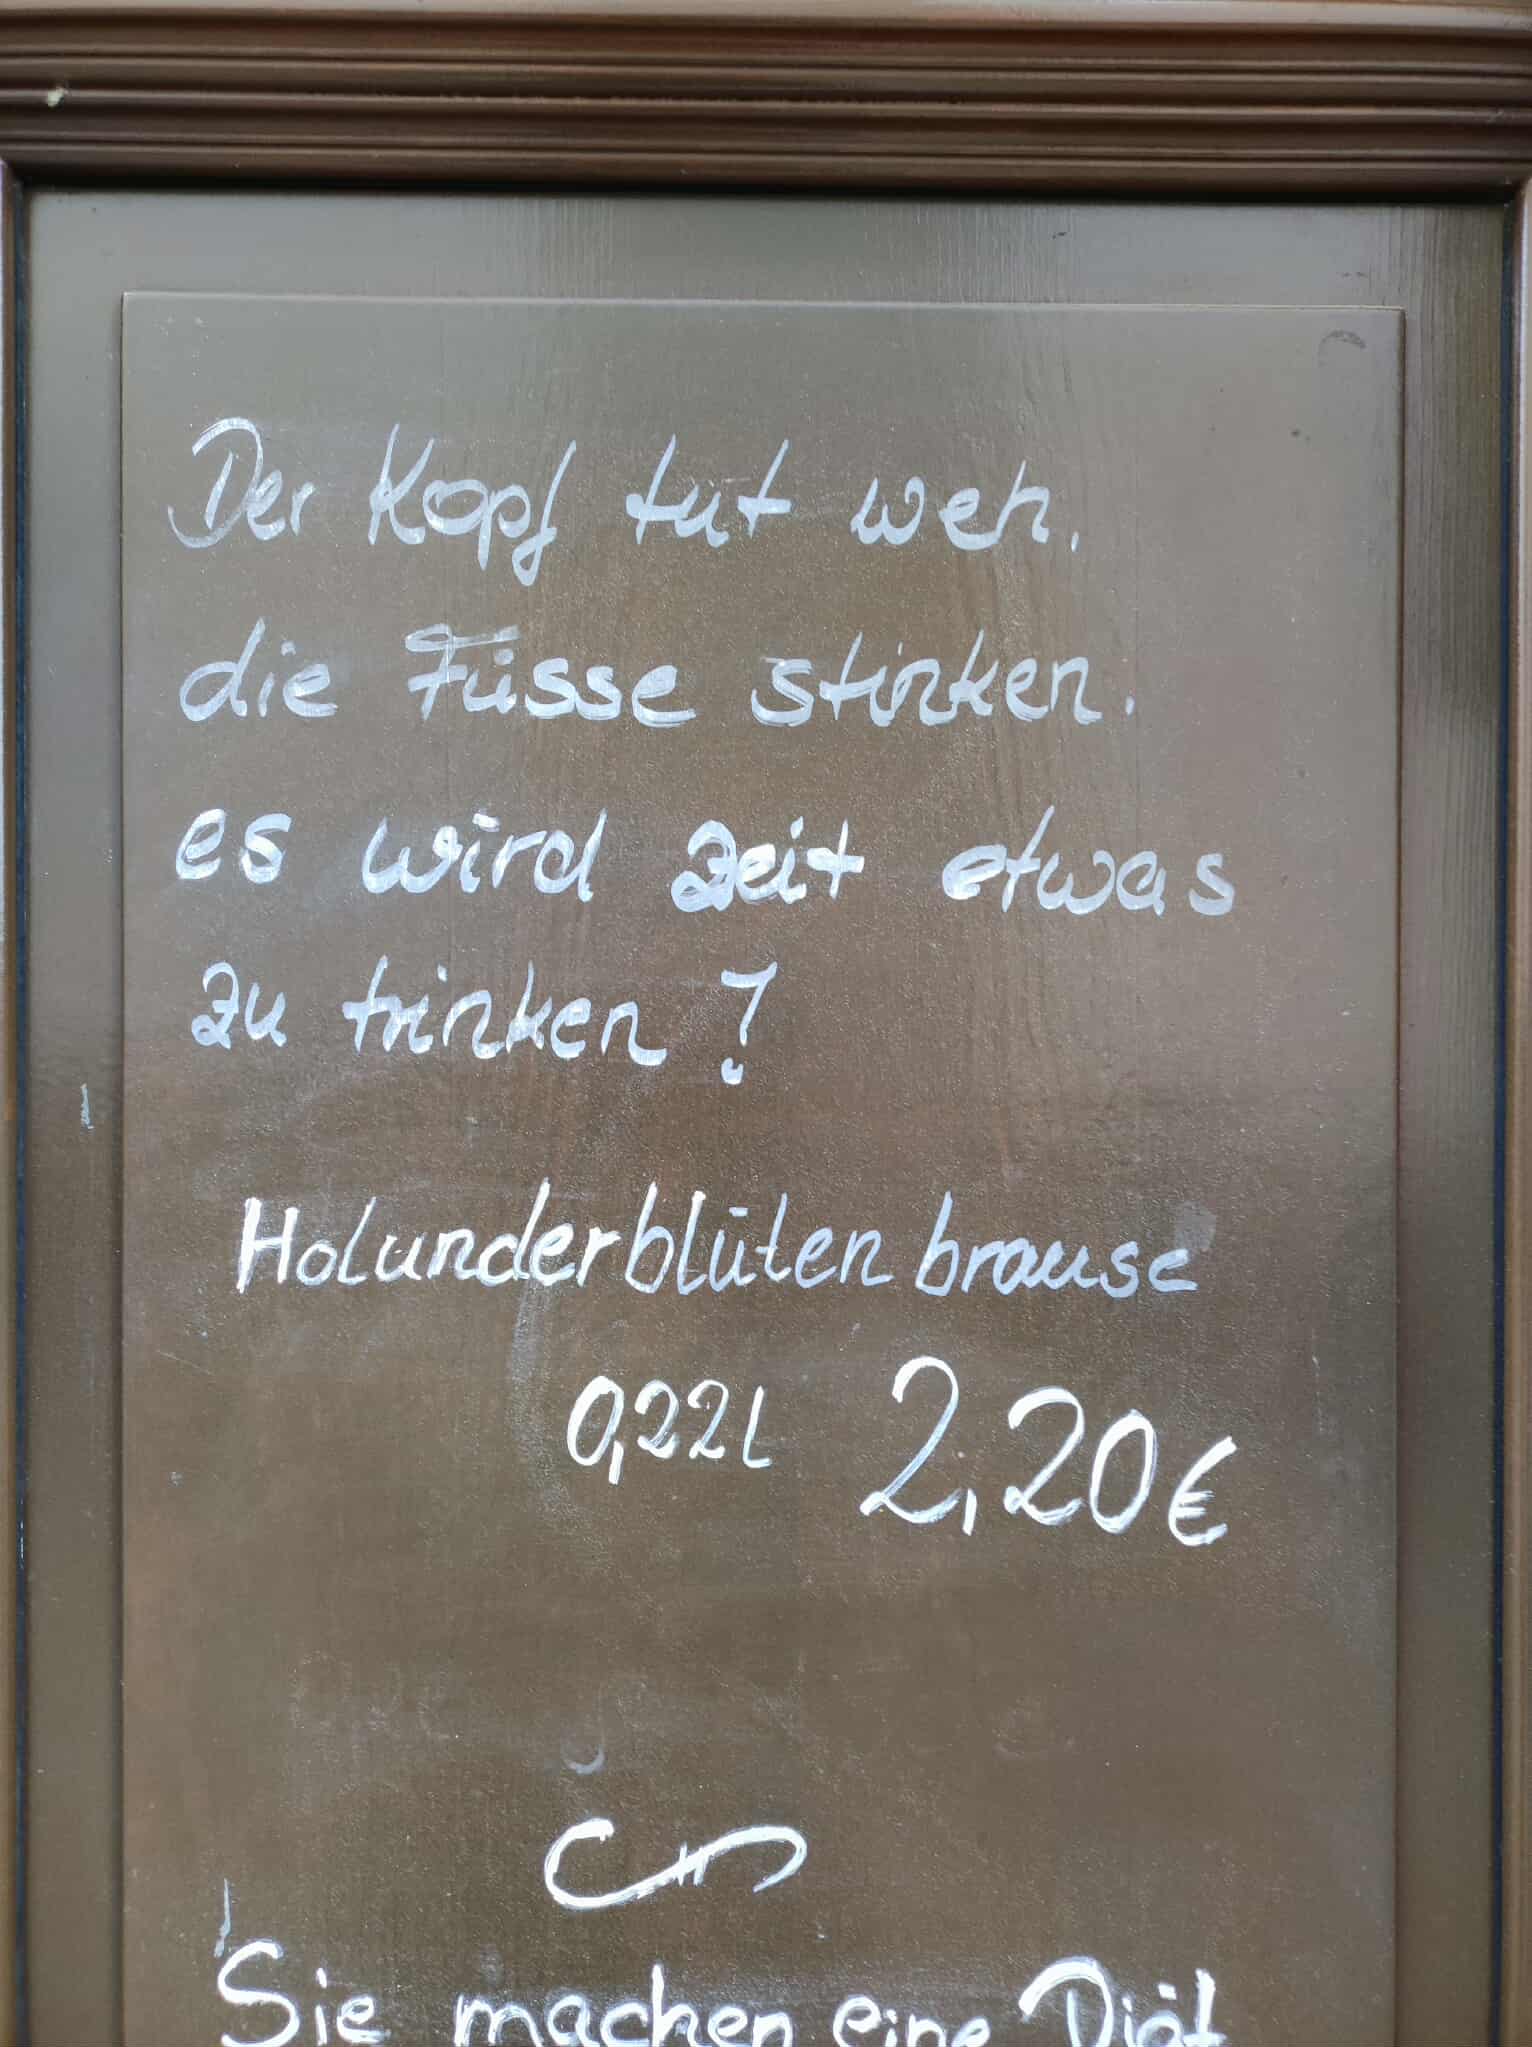 Der Kopf tut weh.
die Füsse stinken.
es wird zeit etwas
zu trinken?
Holunderblüten brause
0,22l 2,20€
Sie machen eine Diät